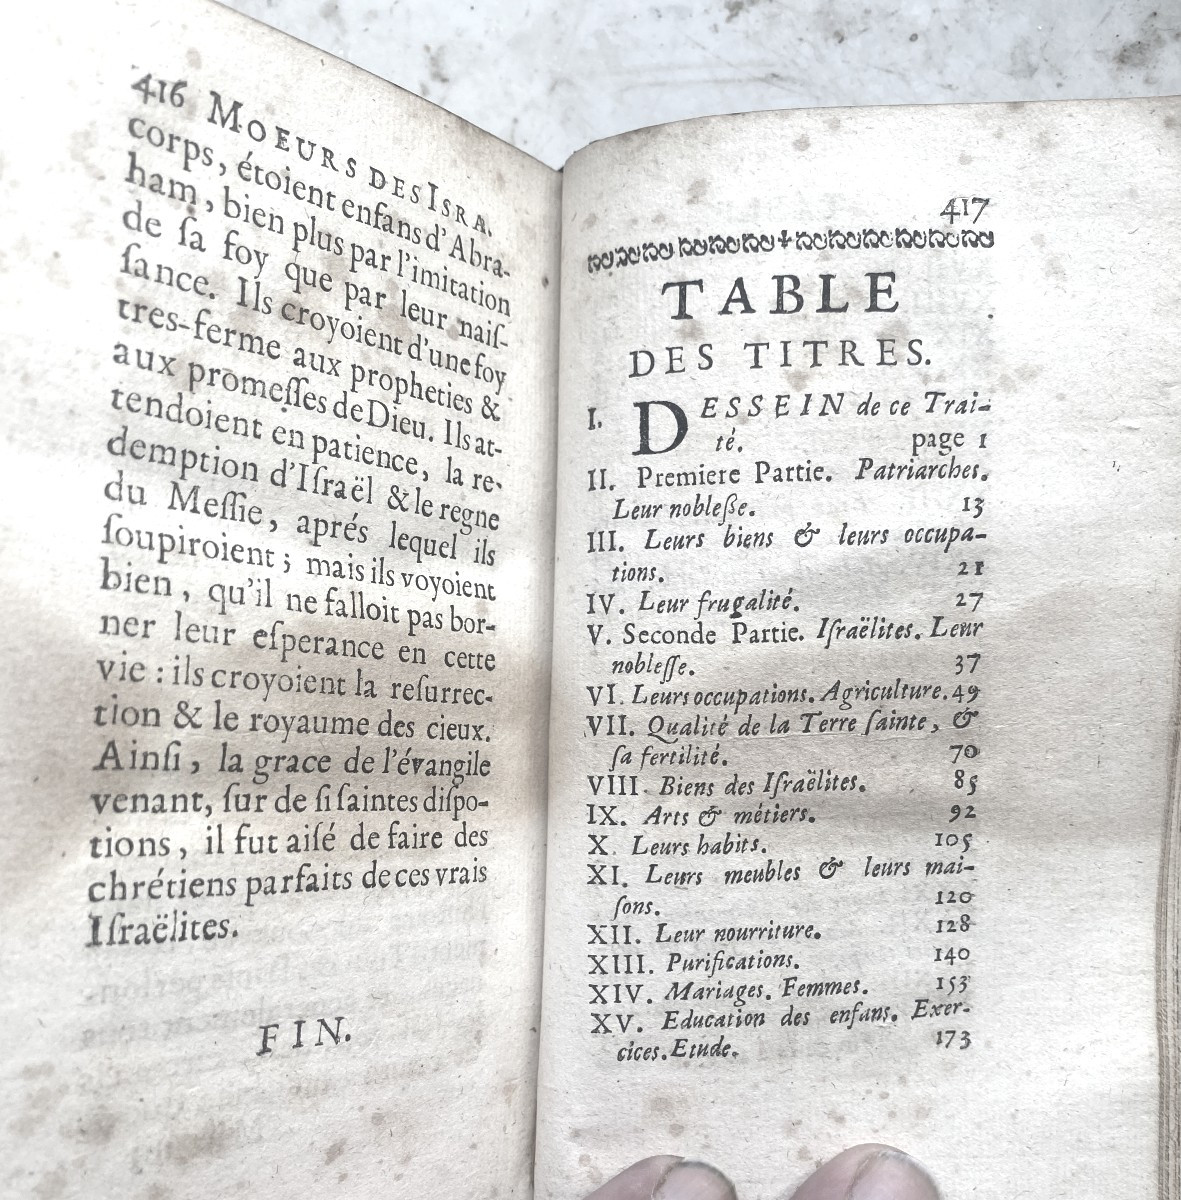 416 MOEURS DES ISRA.
corps, étoient enfans d'Abra-
ham, bien plus par l'imitation
de ſa foy que par leur naiſ-
ſance. Ils croyoient d'une foy
tres-ferme aux propheties &
aux promeſſes de Dieu. Ils at-
tendoient en patience, la re-
demption d'Iſraël & le regne
du Meſſie, aprés lequel ils
ſoupiroient ; mais ils voyoient
bien, qu'il ne falloit pas bor-
ner leur eſperance en cette
vie : ils croyoient la reſurrec-
tion & le royaume des cieux.
Ainſi, la grace de l'évangile
venant, ſur de ſi ſaintes diſpo-
tions, il fut aiſé de faire des
chrétiens parfaits de ces vrais
Iſraëlites.
FIN.
417
TABLE
DES TITRES.
I. DESSEIN de ce Trai-
té. page 1
II. Premiere Partie. Patriarches.
Leur nobleſſe. 13
III. Leurs biens & leurs occupa-
tions. 21
IV. Leur frugalité. 27
V. Seconde Partie. Iſraëlites. Leur
nobleſſe. 37
VI. Leurs occupations. Agriculture. 49
VII. Qualité de la Terre ſainte, &
ſa fertilité. 70
VIII. Biens des Iſraëlites. 85
IX. Arts & métiers. 92
X. Leurs habits. 105
XI. Leurs meubles & leurs mai-
ſons. 120
XII. Leur nourriture. 128
XIII. Purifications. 140
XIV. Mariages. Femmes. 153
XV. Education des enfans. Exer-
cices. Etude. 173